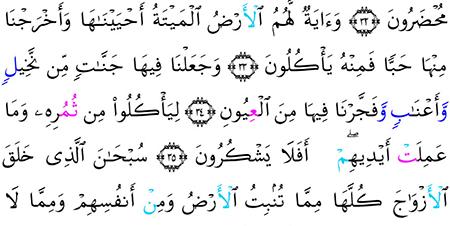 مُحۡضَرُونَ ٣٢ وَءَايَةٞ لَّهُمُ ٱلۡأَرۡضُ ٱلۡمَيۡتَةُ أَحۡيَيۡنَٰهَا وَأَخۡرَجۡنَا
مِنۡهَا حَبّٗا فَمِنۡهُ يَأۡكُلُونَ ٣٣ وَجَعَلۡنَا فِيهَا جَنَّٰتٖ مِّن نَّخِيلٖ
وَأَعۡنَٰبٖ وَفَجَّرۡنَا فِيهَا مِنَ ٱلۡعِيُونِ ٣٤ لِيَأۡكُلُواْ مِن ثُمُرِهِۦ وَمَا
عَمِلَتۡ أَيۡدِيهِمۡۖ أَفَلَا يَشۡكُرُونَ ٣٥ سُبۡحَٰنَ ٱلَّذِي خَلَقَ
ٱلۡأَزۡوَٰجَ كُلَّهَا مِمَّا تُنۢبِتُ ٱلۡأَرۡضُ وَمِنۡ أَنفُسِهِمۡ وَمِمَّا لَا